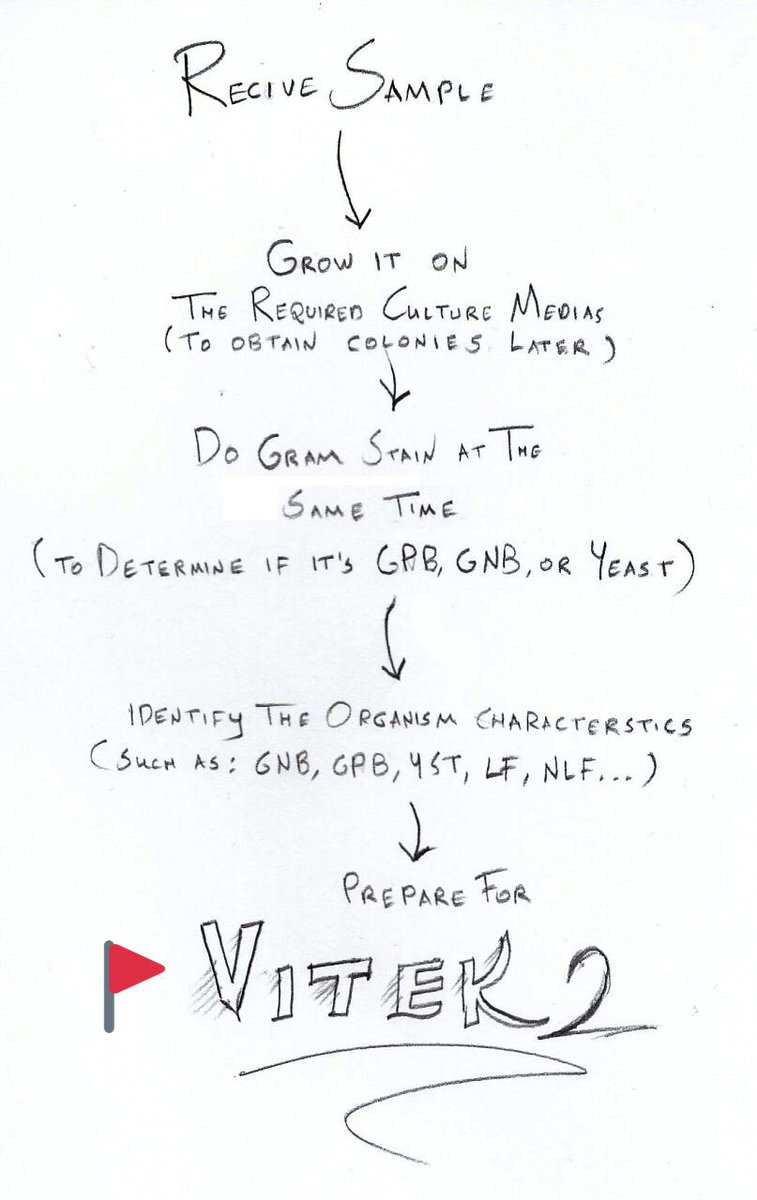 RECIVE SAMPLE
GROW IT ON
THE REQUIRED CULTURE MEDIAS
(TO OBTAIN COLONIES LATER)
DO GRAM STAIN AT THE
SAME TIME
(TO DETERMINE IF IT'S GPB, GNB, OR YEAST)
IDENTIFY THE ORGANISM CHARACTERSTICS
(SUCH AS: GNB, GPB, YST, LF, NLF...)
PREPARE FOR
VITEK 2